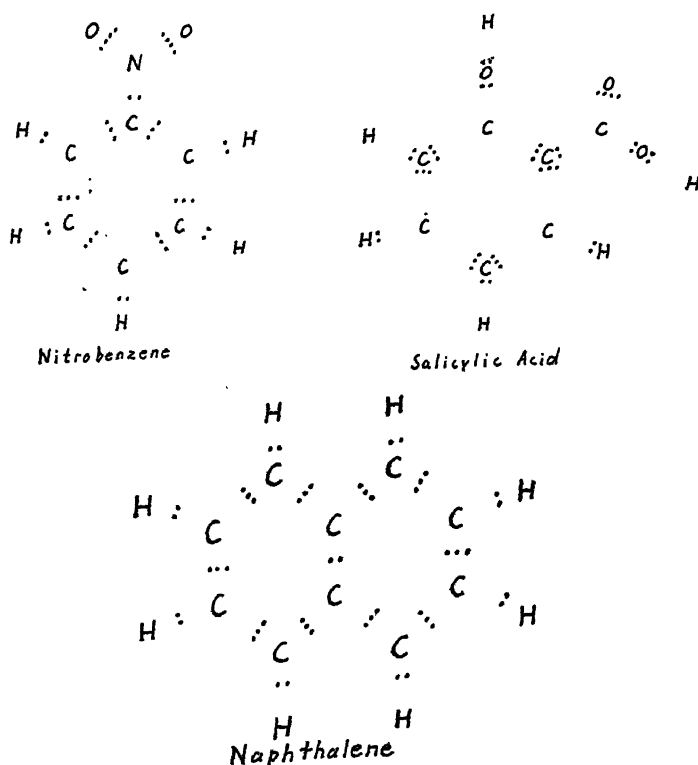 O O
N
C
H H
C C
H C C H
C
H
Nitrobenzene
H
O O
C C
H C C O
H
H C C H
C
H
Salicylic Acid
H H
C C
H H
C C C
C C C
H H
C C
H H
Naphthalene